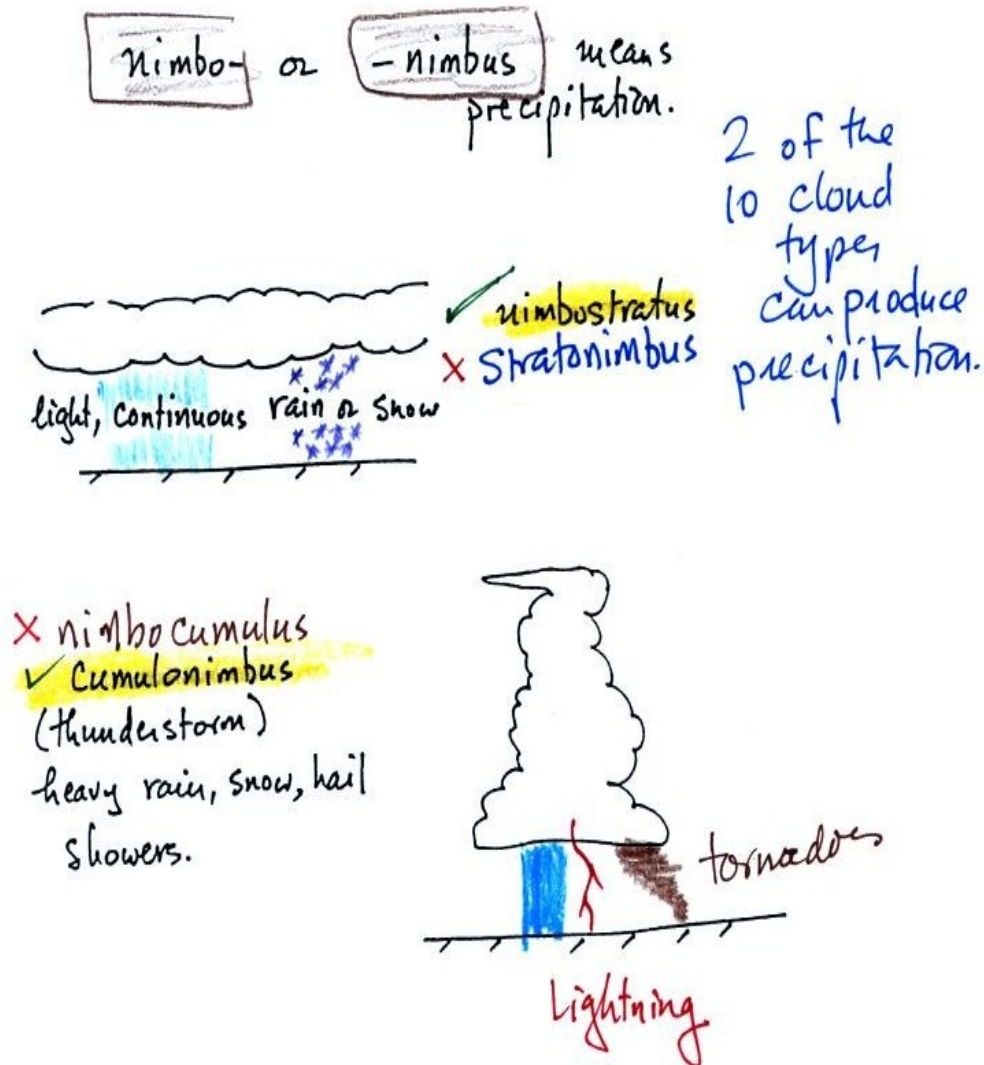 nimbo- or -nimbus means
precipitation.
2 of the
10 cloud
types
can produce
precipitation.
✓ nimbostratus
X Stratonimbus
light, continuous rain or snow
X nimbocumulus
✓ Cumulonimbus
(thunderstorm)
heavy rain, snow, hail
showers.
tornadoes
Lightning